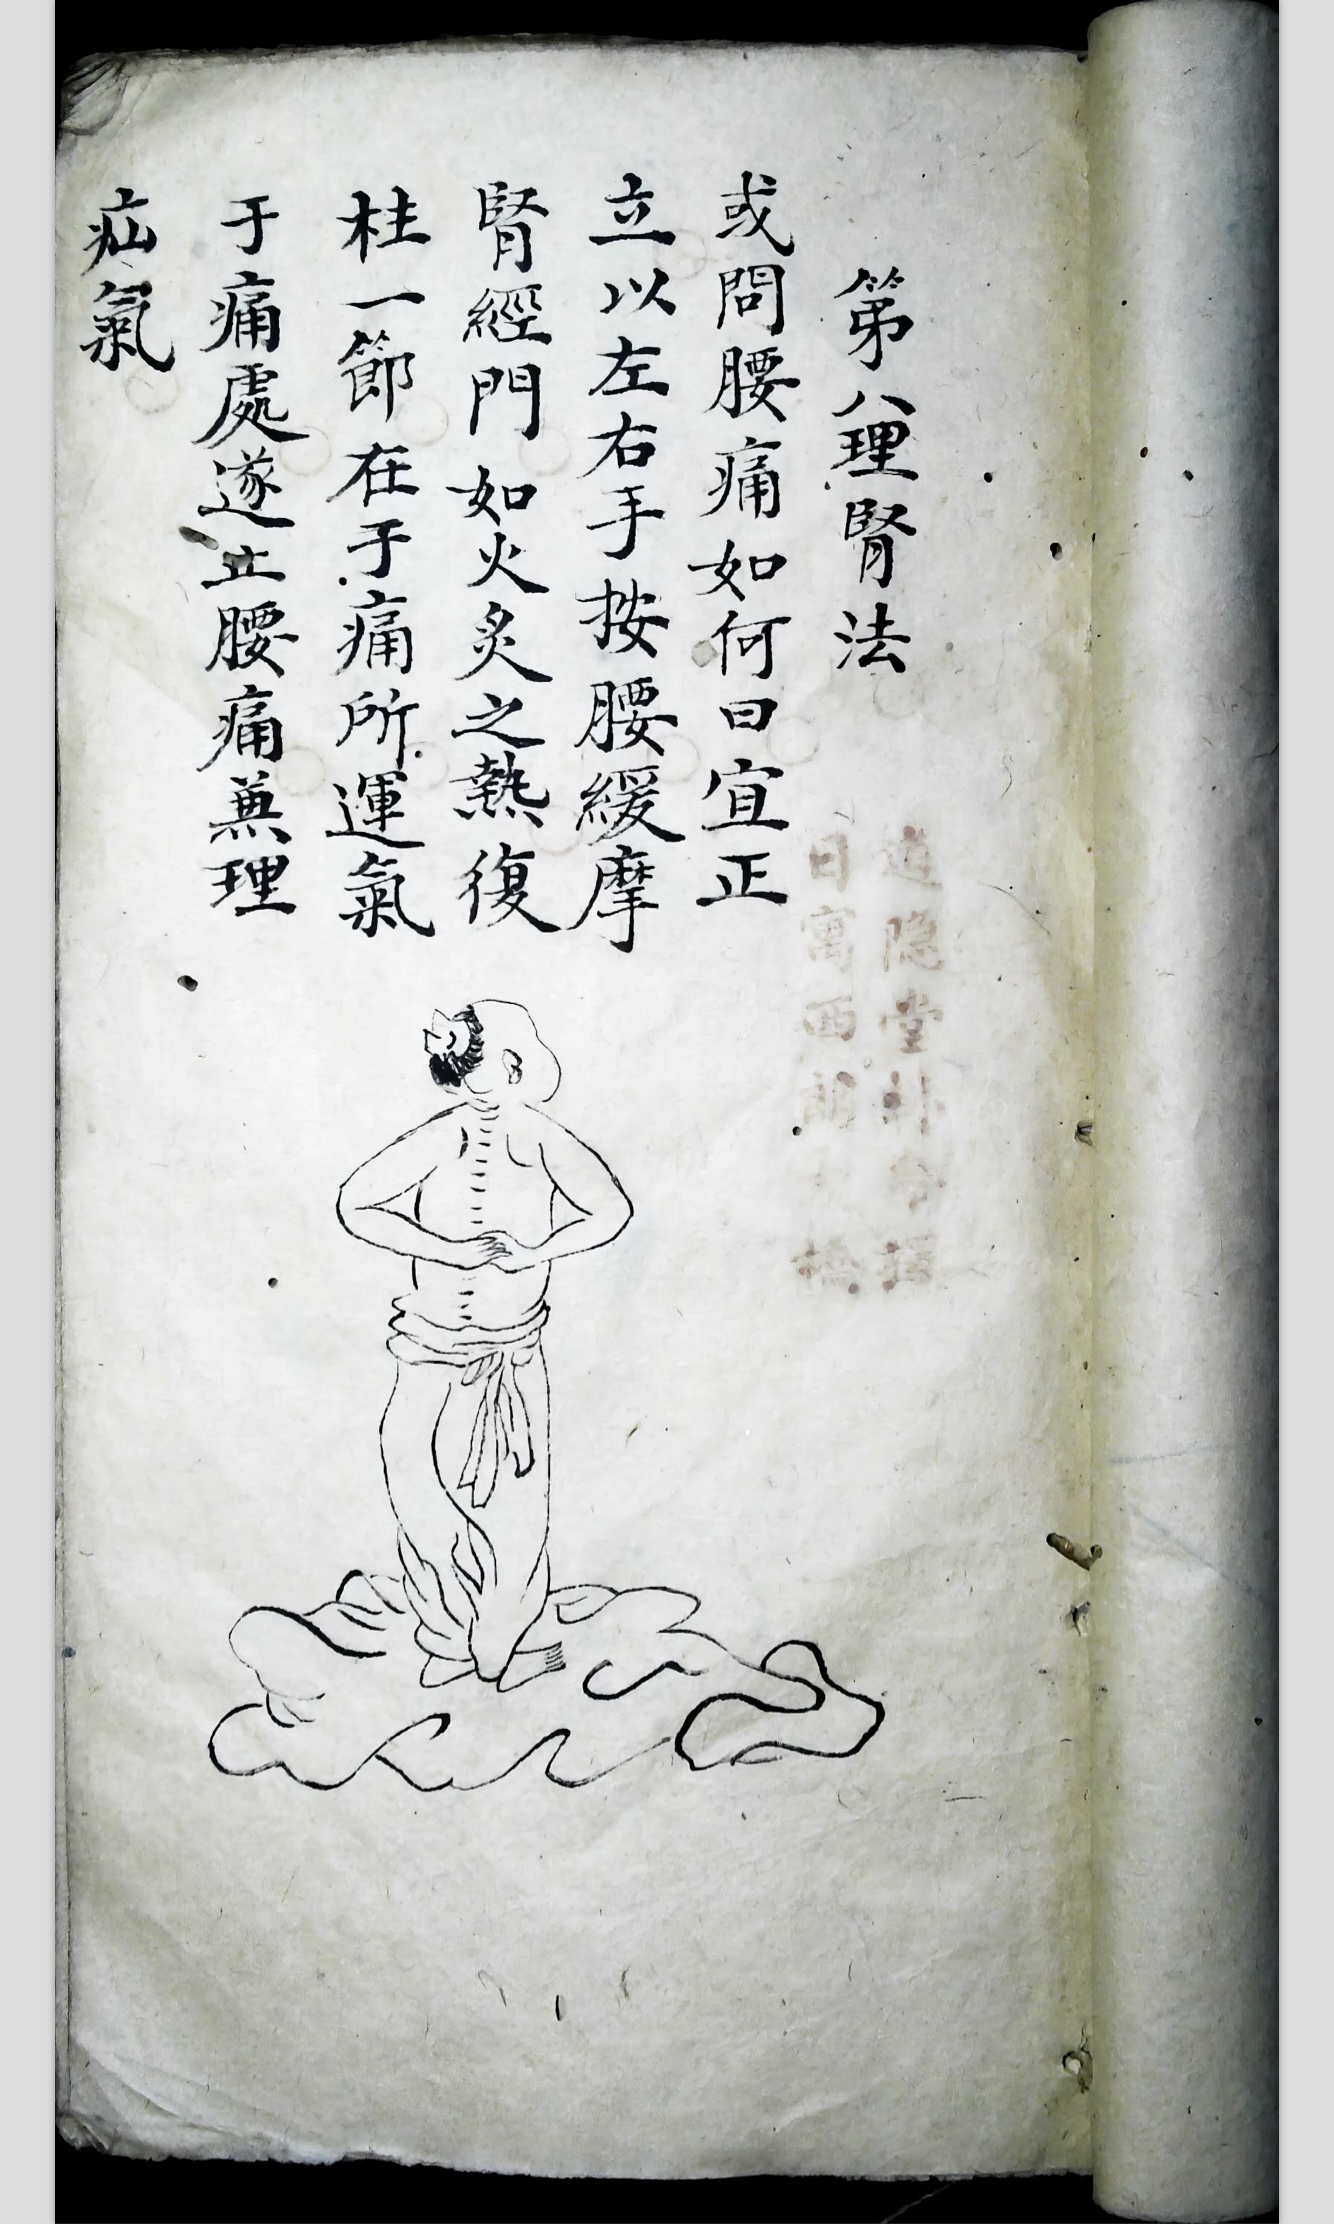 第八理腎法
或問腰痛如何曰宜正
立以左右手按腰緩摩
腎經門如火炙之熱復
柱一節在于痛所運氣
于痛處遂止腰痛兼理
疝氣
隐堂
日寓西